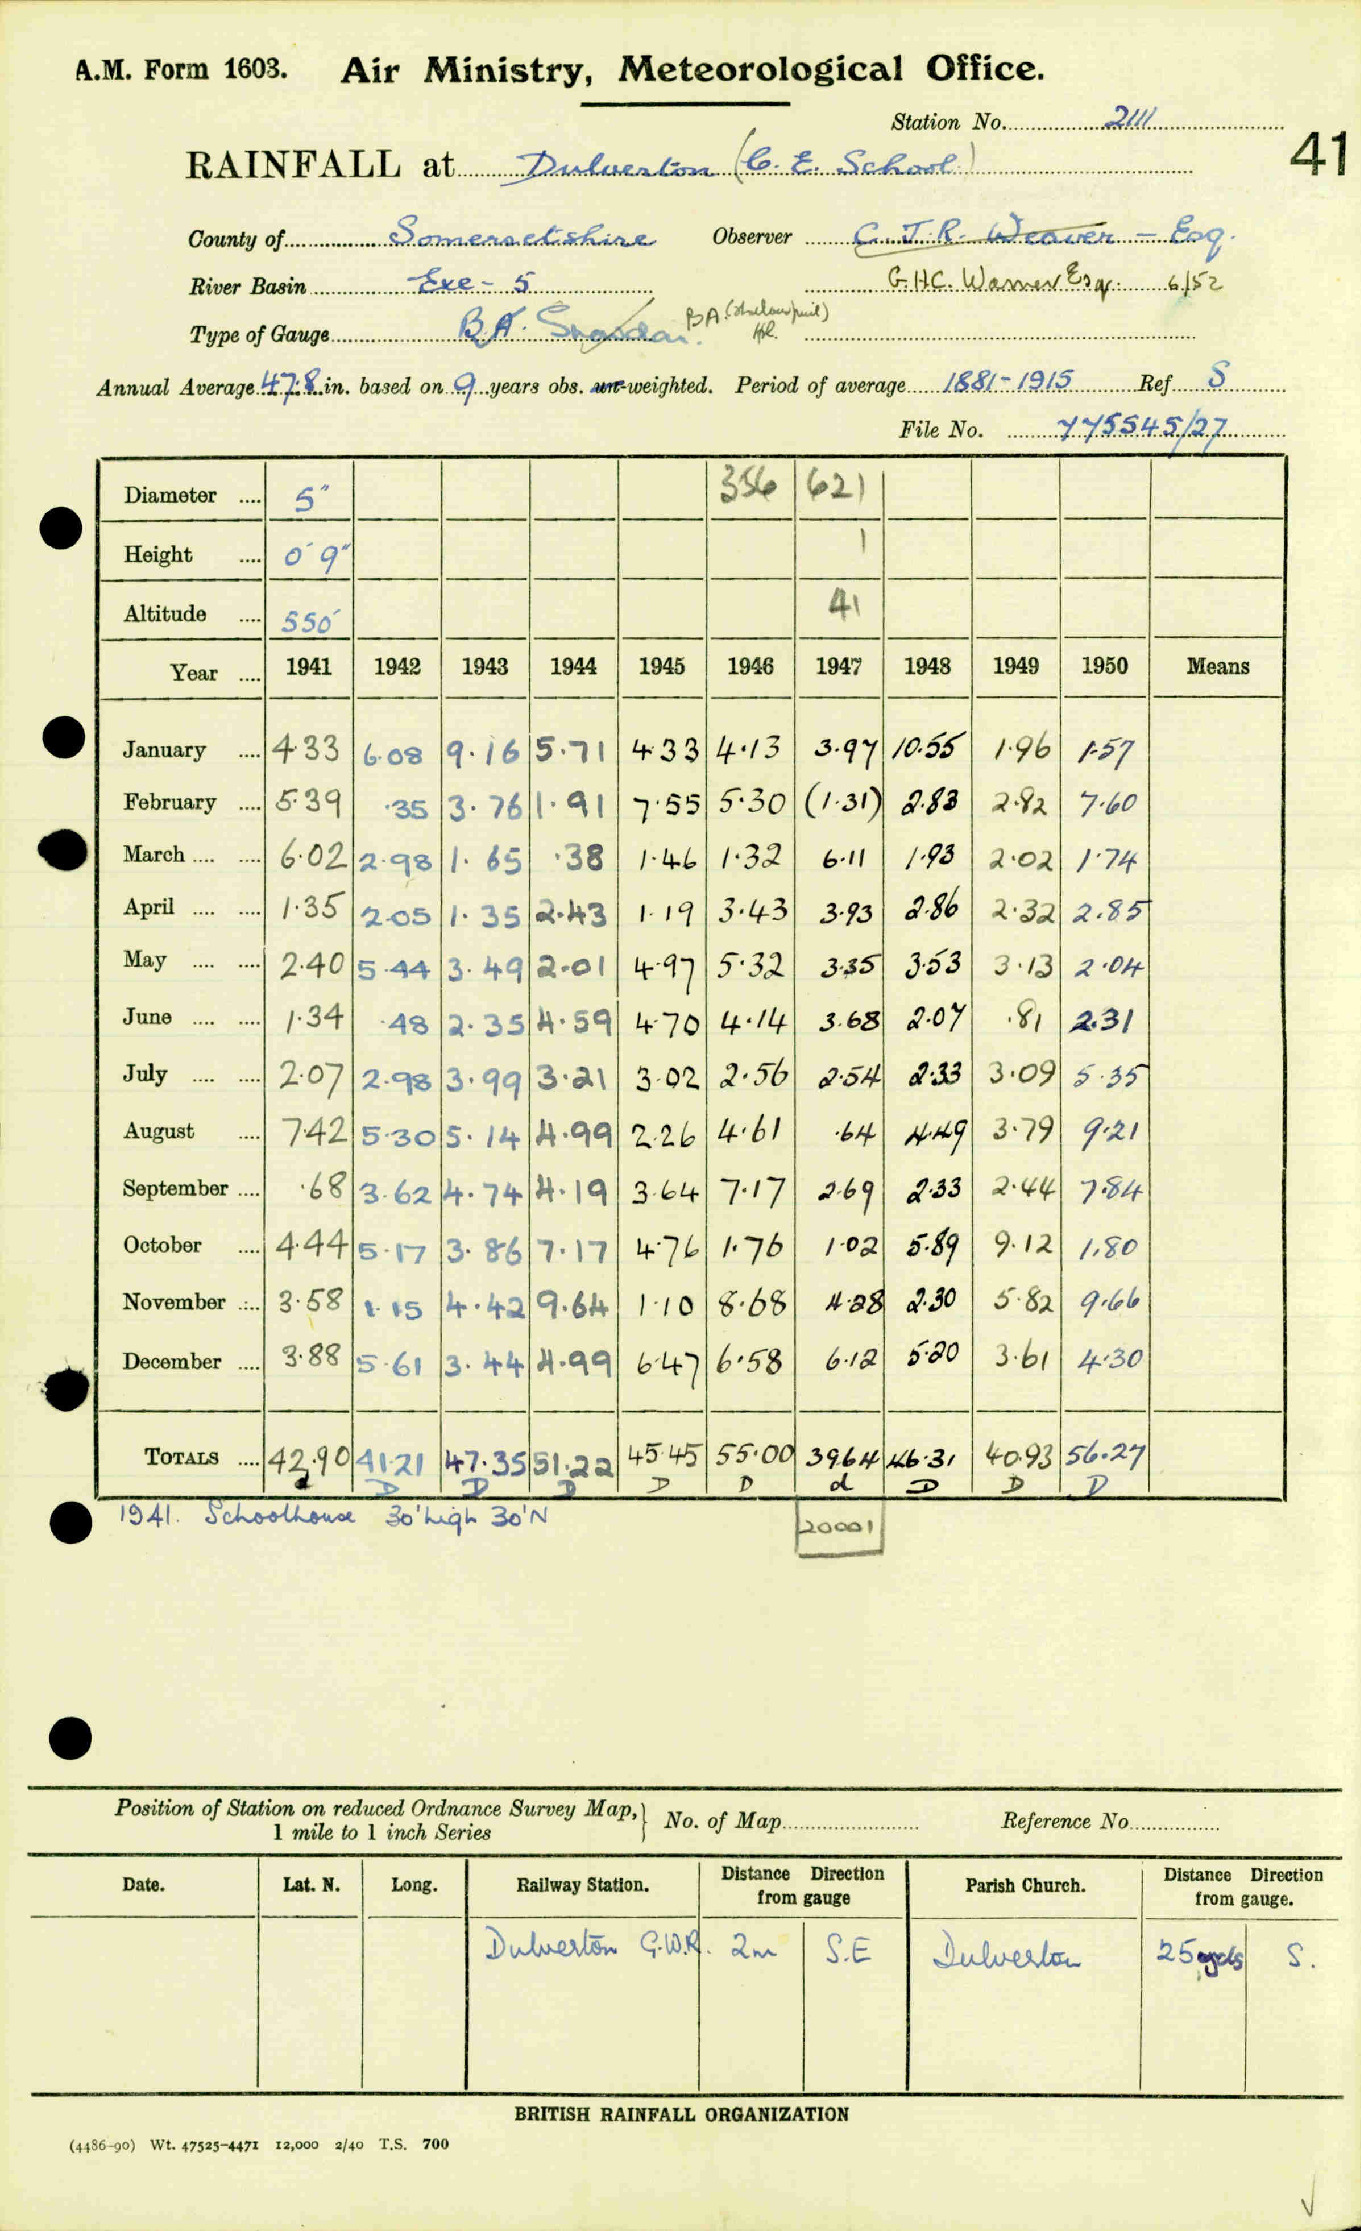 A.M. Form 1603. Air Ministry, Meteorological Office.
Station No. 2111
41
RAINFALL at Dulverton (C. E. School)
County of Somersetshire Observer C. J. R. Weaver - Esq.
River Basin Exe - 5 G.H.C. Warner Esq. 6/52
Type of Gauge B.A. Snowdon. B A.
Annual Average 47.8 in. based on 9 years obs. un-weighted. Period of average 1881-1915 Ref S
File No. 775545/27
Diameter .... 5" 356 621
Height .... 0' 9" 1
Altitude .... 550' 41
Year .... 1941 1942 1943 1944 1945 1946 1947 1948 1949 1950 Means
January .... 4.33 6.08 9.16 5.71 4.33 4.13 3.97 10.55 1.96 1.57
February .... 5.39 .35 3.76 1.91 7.55 5.30 (1.31) 2.83 2.82 7.60
March .... .... 6.02 2.98 1.65 .38 1.46 1.32 6.11 1.93 2.02 1.74
April .... .... 1.35 2.05 1.35 2.43 1.19 3.43 3.93 2.86 2.32 2.85
May .... .... 2.40 5.44 3.49 2.01 4.97 5.32 3.35 3.53 3.13 2.04
June .... .... 1.34 .48 2.35 4.59 4.70 4.14 3.68 2.07 .81 2.31
July .... .... 2.07 2.98 3.99 3.21 3.02 2.56 2.54 2.33 3.09 5.35
August .... 7.42 5.30 5.14 4.99 2.26 4.61 .64 4.49 3.79 9.21
September .... .68 3.62 4.74 4.19 3.64 7.17 2.69 2.33 2.44 7.84
October .... 4.44 5.17 3.86 7.17 4.76 1.76 1.02 5.89 9.12 1.80
November .... 3.58 1.15 4.42 9.64 1.10 8.68 4.28 2.30 5.82 9.66
December .... 3.88 5.61 3.44 4.99 6.47 6.58 6.12 5.20 3.61 4.30
TOTALS .... 42.90 41.21 47.35 51.22 45.45 55.00 39.64 46.31 40.93 56.27
d D D D D D d D D D
1941. Schoolhouse 30' high 30' N
20001
Position of Station on reduced Ordnance Survey Map, No. of Map Reference No.
1 mile to 1 inch Series
Date. Lat. N. Long. Railway Station. Distance Direction from gauge Parish Church. Distance Direction from gauge.
Dulverton G.W.R. 2m S.E Dulverton 25 yds S.
BRITISH RAINFALL ORGANIZATION
(4486-90) Wt. 47525-4471 12,000 2/40 T.S. 700